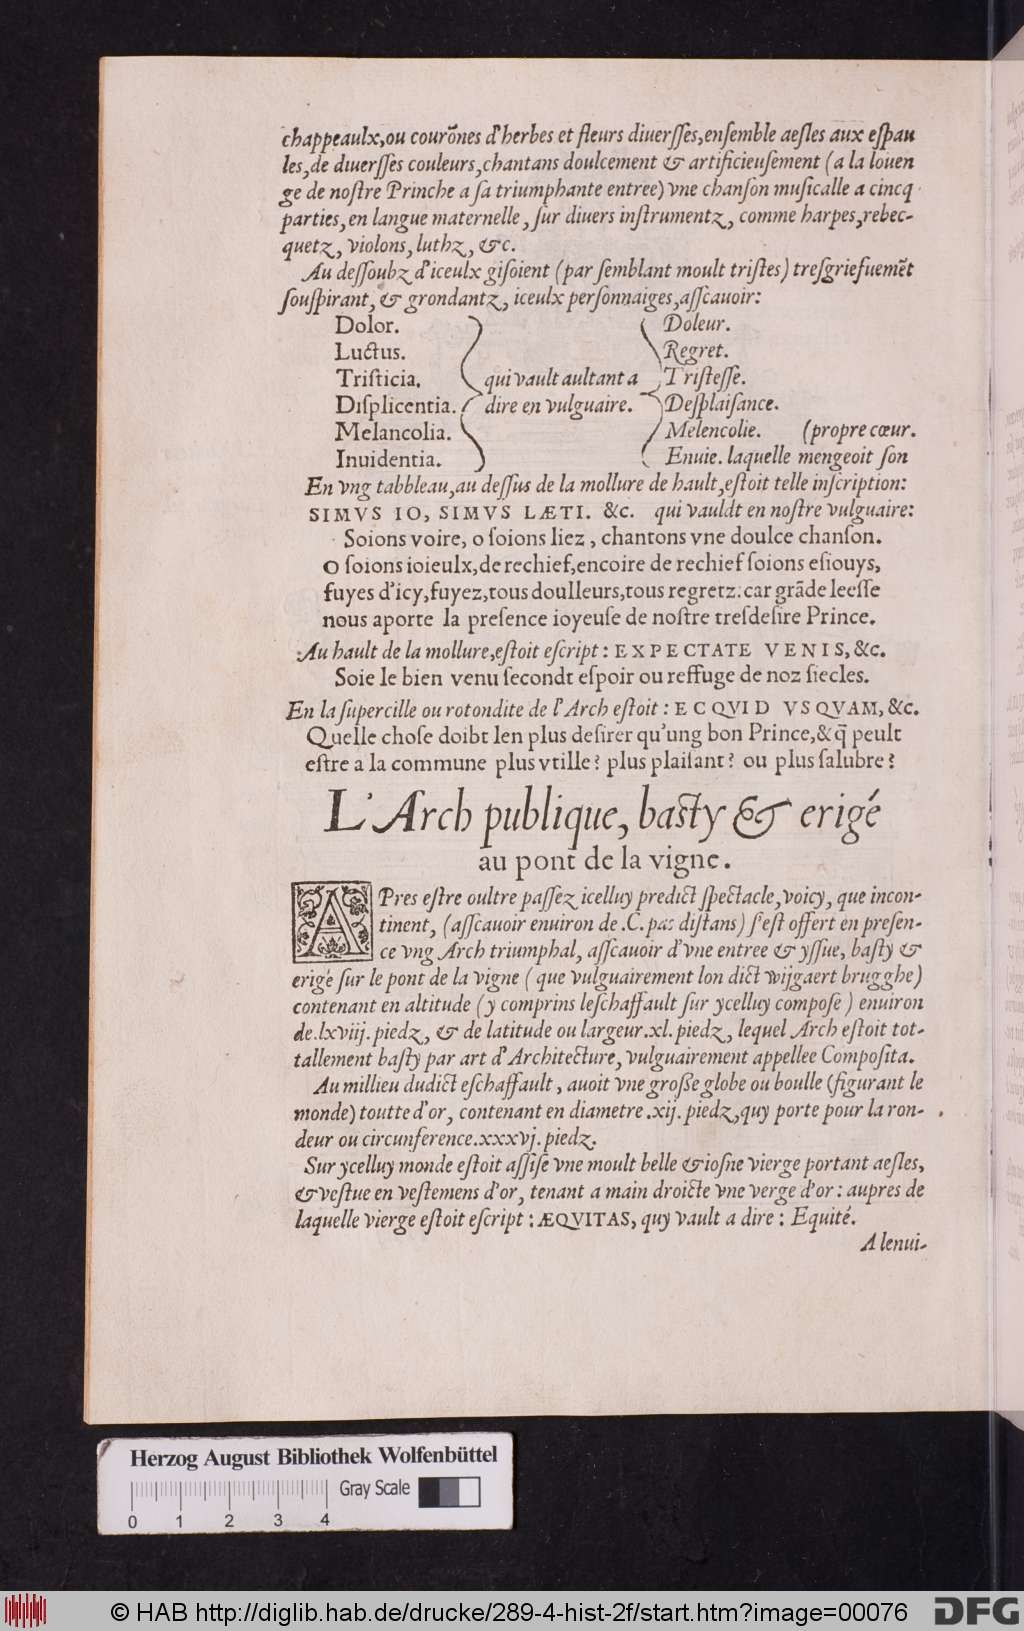 chappeaulx, ou courõnes d'herbes et fleurs diuerſſes, enſemble aeſles aux eſpau
les, de diuerſſes couleurs, chantans doulcement & artificieuſement (a la louen
ge de noſtre Prinche a ſa triumphante entree) vne chanſon muſicalle a cincq
parties, en langue maternelle, ſur diuers inſtrumentz, comme harpes, rebec-
quetz, violons, luthz, &c.
Au deſſoubz d'iceulx giſoient (par ſemblant moult triſtes) treſgriefuemẽt
ſouſpirant, & grondantz, iceulx perſonnaiges, aſſcauoir:
Dolor. Doleur.
Luctus. Regret.
Triſticia. qui vault aultant a Triſteſſe.
Diſplicentia. dire en vulguaire. Deſplaiſance.
Melancolia. Melencolie. (propre cœur.
Inuidentia. Enuie. laquelle mengeoit ſon
En vng tabbleau, au deſſus de la mollure de hault, eſtoit telle inſcription:
SIMVS IO, SIMVS LÆTI. &c. qui vauldt en noſtre vulguaire:
Soions voire, o ſoions liez, chantons vne doulce chanſon.
O ſoions ioieulx, de rechief, encoire de rechief ſoions eſiouys,
fuyes d'icy, fuyez, tous doulleurs, tous regretz: car grãde leeſſe
nous aporte la preſence ioyeuſe de noſtre treſdeſire Prince.
Au hault de la mollure, eſtoit eſcript: EXPECTATE VENIS, &c.
Soie le bien venu ſecondt eſpoir ou reffuge de noz ſiecles.
En la ſupercille ou rotondite de l'Arch eſtoit: ECQVID VSQVAM, &c.
Quelle choſe doibt len plus deſirer qu'ung bon Prince, & q̃ peult
eſtre a la commune plus vtille? plus plaiſant? ou plus ſalubre?
L'Arch publique, baſty & erigé
au pont de la vigne.
APres eſtre oultre paſſez icelluy predict ſpectacle, voicy, que incon-
tinent, (aſſcauoir enuiron de .C. pas diſtans) s'eſt offert en preſen-
ce vng Arch triumphal, aſſcauoir d'vne entree & yſſue, baſty &
erigé ſur le pont de la vigne (que vulguairement lon dict wijgaert brugghe)
contenant en altitude (y comprins leſchaffault ſur ycelluy compoſé) enuiron
de .lxviij. piedz, & de latitude ou largeur .xl. piedz, lequel Arch eſtoit tot-
tallement baſty par art d'Architecture, vulguairement appellee Compoſita.
Au millieu dudict eſchaffault, auoit vne groſſe globe ou boulle (figurant le
monde) toutte d'or, contenant en diametre .xij. piedz, quy porte pour la ron-
deur ou circunference .xxxvj. piedz.
Sur ycelluy monde eſtoit aſſiſe vne moult belle & ioſne vierge portant aeſles,
& veſtue en veſtemens d'or, tenant a main droicte vne verge d'or: aupres de
laquelle vierge eſtoit eſcript: ÆQVITAS, quy vault a dire: Equité.
A lenui-
Herzog August Bibliothek Wolfenbüttel
Gray Scale
0 1 2 3 4
© HAB http://diglib.hab.de/drucke/289-4-hist-2f/start.htm?image=00076
DFG